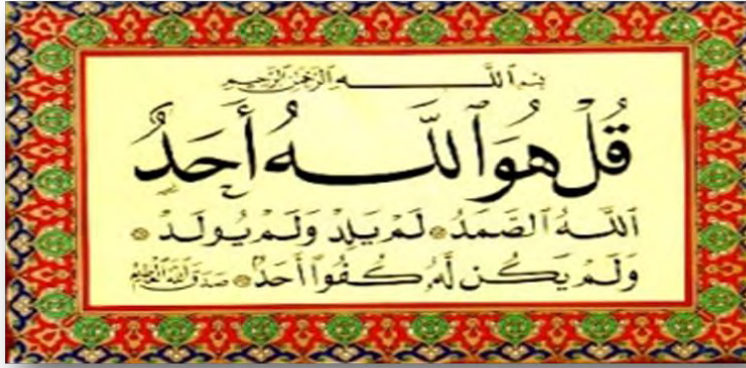 بِسْمِ ٱللَّهِ ٱلرَّحْمَٰنِ ٱلرَّحِيمِ
قُلْ هُوَ ٱللَّهُ أَحَدٌ
ٱللَّهُ ٱلصَّمَدُ * لَمْ يَلِدْ وَلَمْ يُولَدْ *
وَلَمْ يَكُن لَّهُۥ كُفُوًا أَحَدٌ * صَدَقَ ٱللَّهُ ٱلْعَظِيمُ